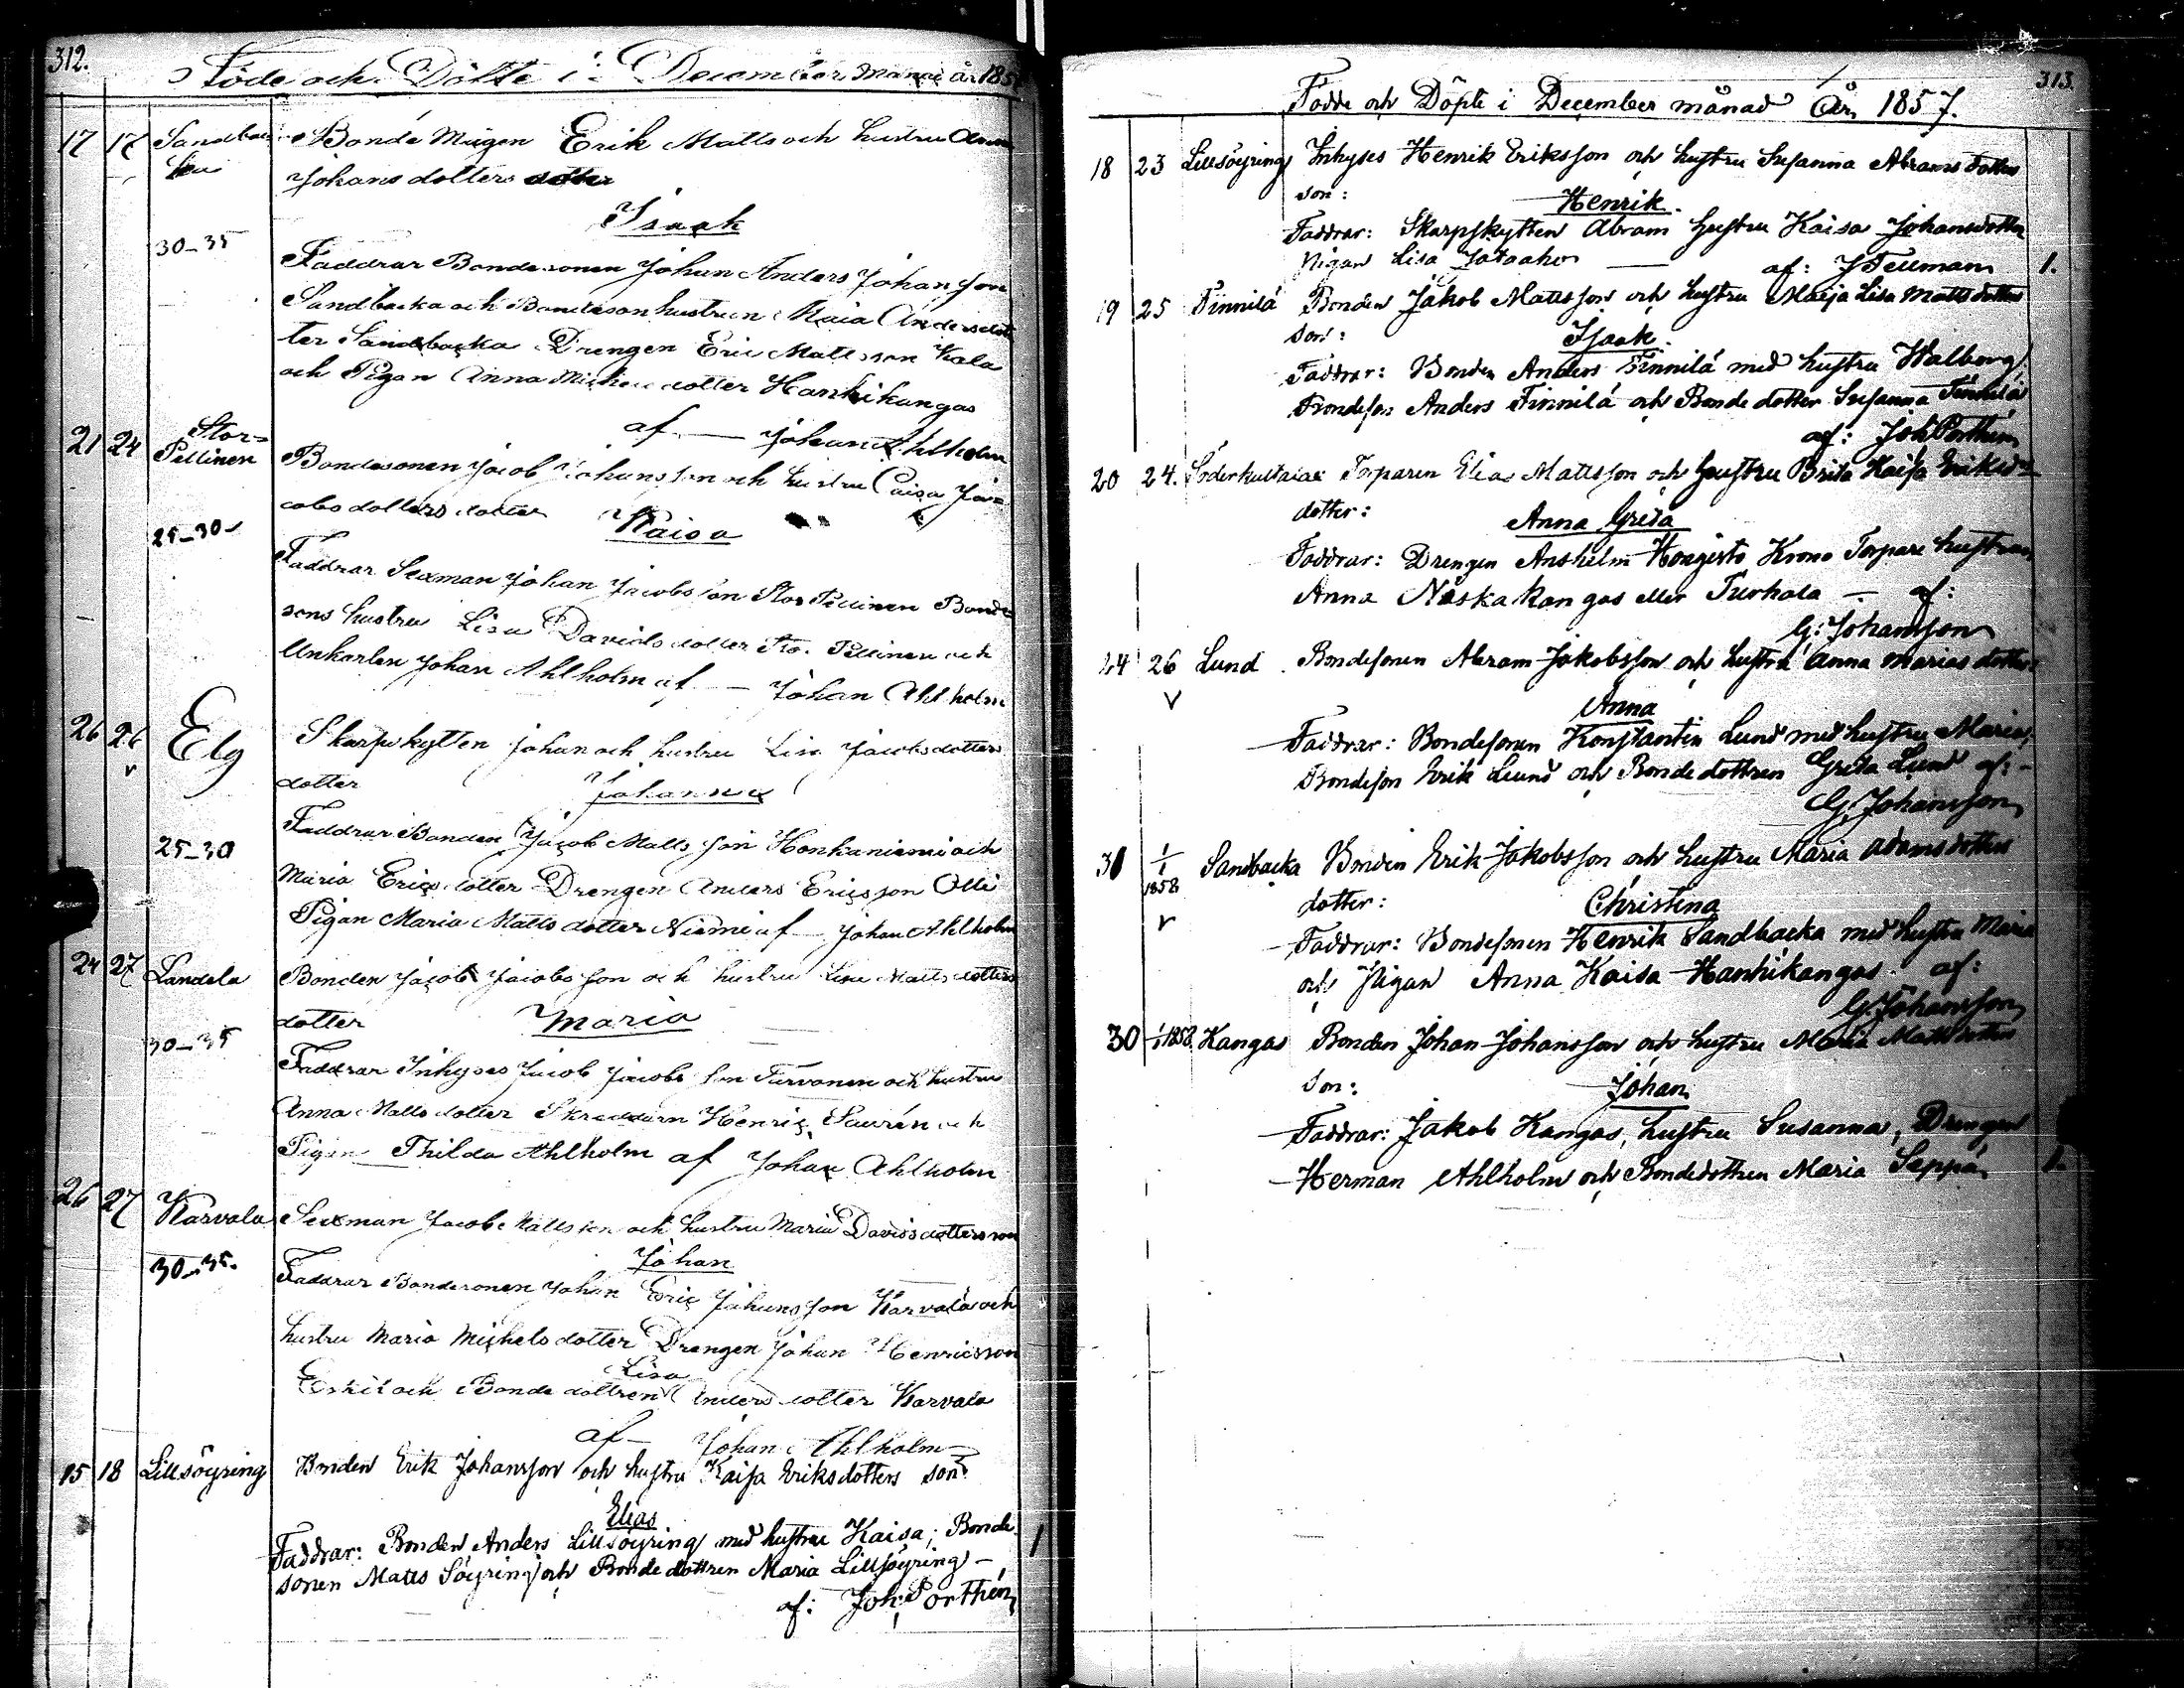 312.
Föde och Döpte i December Månad år 185
17 17 Sandbacka Bonde Mågen Erik Matts och hustru Anna
Johans dotters
Isaak
30-35
Faddrar Bondesonen Johan Anders Johansson
Sandbacka och Bondesonhustrun Maia Andersdot
ter Sandbacka Drengen Eric Mattsson Kala
och Pigan Anna Michels dotter Hanhikangas
af — Johan Ahlholm
21 24 Stor=
Pellinen Bondesonen Jacob Johansson och hustru Caisa Ja=
cobs dotters dotter
Kaisa
25-30
Faddrar Sexman Johan Jacobsson Stor Pellinen Bonde
sons hustru Lisa Davids dotter Sto. Pellinen och
Unkarlen Johan Ahlholm af — Johan Ahlholm
26 26 Elg Skarpskytten Johan och hustru Lisa Jacobs dotters
v
dotter Johanna
25-30
Faddrar Bonden Jacob Mattsson Honkaniemi och
Maria Erics dotter Drengen Anders Ericsson Olli
Pigan Maria Matts dotter Niemi af Johan Ahlholm
24 27 Landela Bonden Jacob Jacobsson och hustru Lisa Matts dotters
dotter Maria
30-35
Faddrar Inhyses Jacob Jacobsson Turvanen och hustru
Anna Matts dotter Skreddarn Henric Saurén och
Pigan Thilda Ahlholm af Johan Ahlholm
26 27 Karvala Sexman Jacob Mattsson och hustru Maria Davids dotters son
Johan
30-35.
Faddrar Bondesonen Johan Eric Johansson Karvala och
hustru Maria Michels dotter Drengen Johan Henricsson
Lisa
Eskil och Bonde dottren Anders dotter Karvala
af — Johan Ahlholm
15 18 Lillsöyring Bonden Erik Johansson och hustru Kaisa Eriksdotters son
Elias
Faddrar: Bonden Anders Lillsöyring med hustru Kaisa; Bonde 1
sonen Matts Söyring och Bonde dottren Maria Lillsöyring —
af: Joh. Porthén
313.
Födde och Döpte i December månad År 1857.
18 23 Lillsöyring Inhyses Henrik Eriksson och hustru Susanna Abrams dotters
son: Henrik.
Faddrar: Skarpskytten Abram hustru Kaisa Johansdotter
Pigan Lisa Jataaho — af: J Fellman 1.
19 25 Finnilä Bonden Jakob Mattsson och hustru Maija Lisa Matts dotters
son: Isaak.
Faddrar: Bonden Anders Finnilä med hustru Walborg
Bondeson Anders Finnilä och Bonde dotter Susanna Finnilä
af: Joh Porthén
20 24. Söderkultalax Torparen Elias Mattsson och hustru Brita Kaisa Eriksd:
dotter: Anna Greta
Faddrar: Drengen Anshelm Hongisto Krono Torpare hustrun
Anna Näskakangas eller Turhala — af:
G: Johansson
24 26 Lund. Bondesonen Abram Jakobsson och hustru Anna Marias dotter:
v
Anna
Faddrar: Bondesonen Konstantin Lund med hustru Maria,
Bondeson Erik Lund och Bonde dottren Greta Lund af: —
G. Johansson
31 1/1 1858 Sandbacka Bonden Erik Jakobsson och hustru Maria Adamsdotters
v
dotter: Christina
Faddrar: Bondesonen Henrik Sandbacka med hustru Maria
och Pigan Anna Kaisa Hanhikangas. af:
G. Johansson
30 1/1 1858. Kangas Bonden Johan Johansson och hustru Maria Mattsdotters
son: Johan
Faddrar: Jakob Kangas, hustru Susanna, Drengen
Herman Ahlholm och Bondedottren Maria Seppä 1.